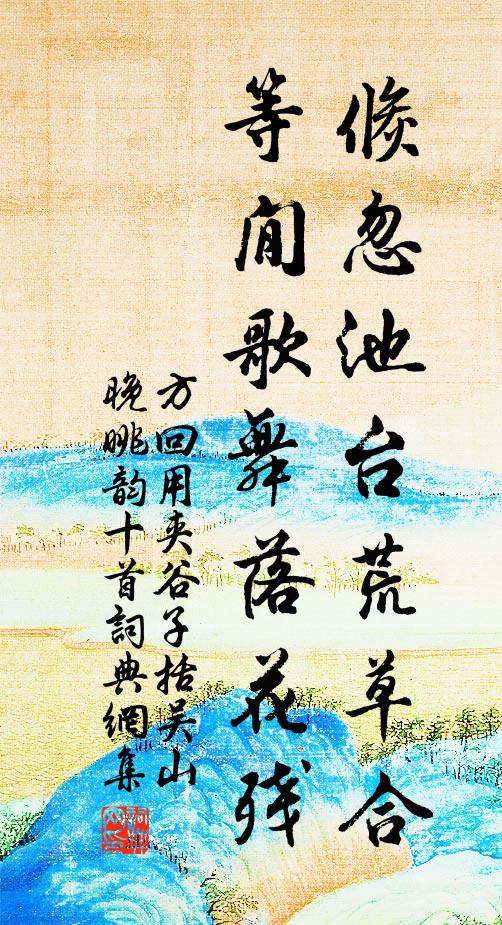 倏忽池台荒草合
等閒歌舞落花残
方回用夹谷子括吴山
晚眺韵十首詞典網集